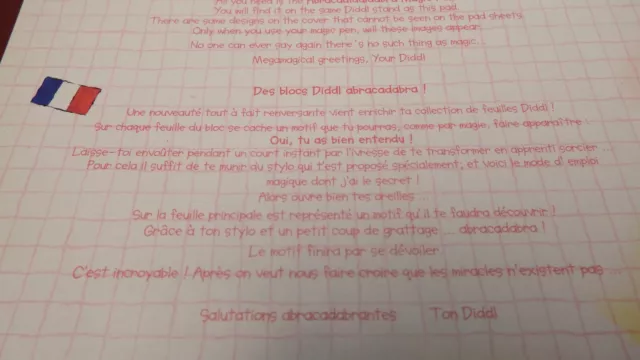 You will find it on the same Diddl stand as this pad.
There are some designs on the cover that cannot be seen on the pad sheets.
Only when you use your magic pen, will these images appear.
No one can ever say again there's no such thing as magic.
Megamagical greetings, Your Diddl
Des blocs Diddl abracadabra !
Une nouveauté tout à fait renversante vient enrichir ta collection de feuilles Diddl !
Sur chaque feuille du bloc se cache un motif que tu pourras, comme par magie, faire apparaître !
Oui, tu as bien entendu !
Laisse-toi envoûter pendant un court instant par l'ivresse de te transformer en apprenti sorcier ...
Pour cela il suffit de te munir du stylo qui t'est proposé spécialement, et voici le mode d'emploi
magique dont j'ai le secret !
Alors ouvre bien tes oreilles ...
Sur la feuille principale est représenté un motif qu'il te faudra découvrir !
Grâce à ton stylo et un petit coup de grattage ... abracadabra !
Le motif finira par se dévoiler
C'est incroyable ! Après on veut nous faire croire que les miracles n'existent pas ...
Salutations abracadabrantes Ton Diddl